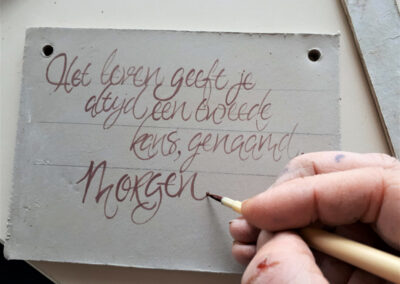 Het leven geeft je
altijd een tweede
kans, genaamd
Morgen